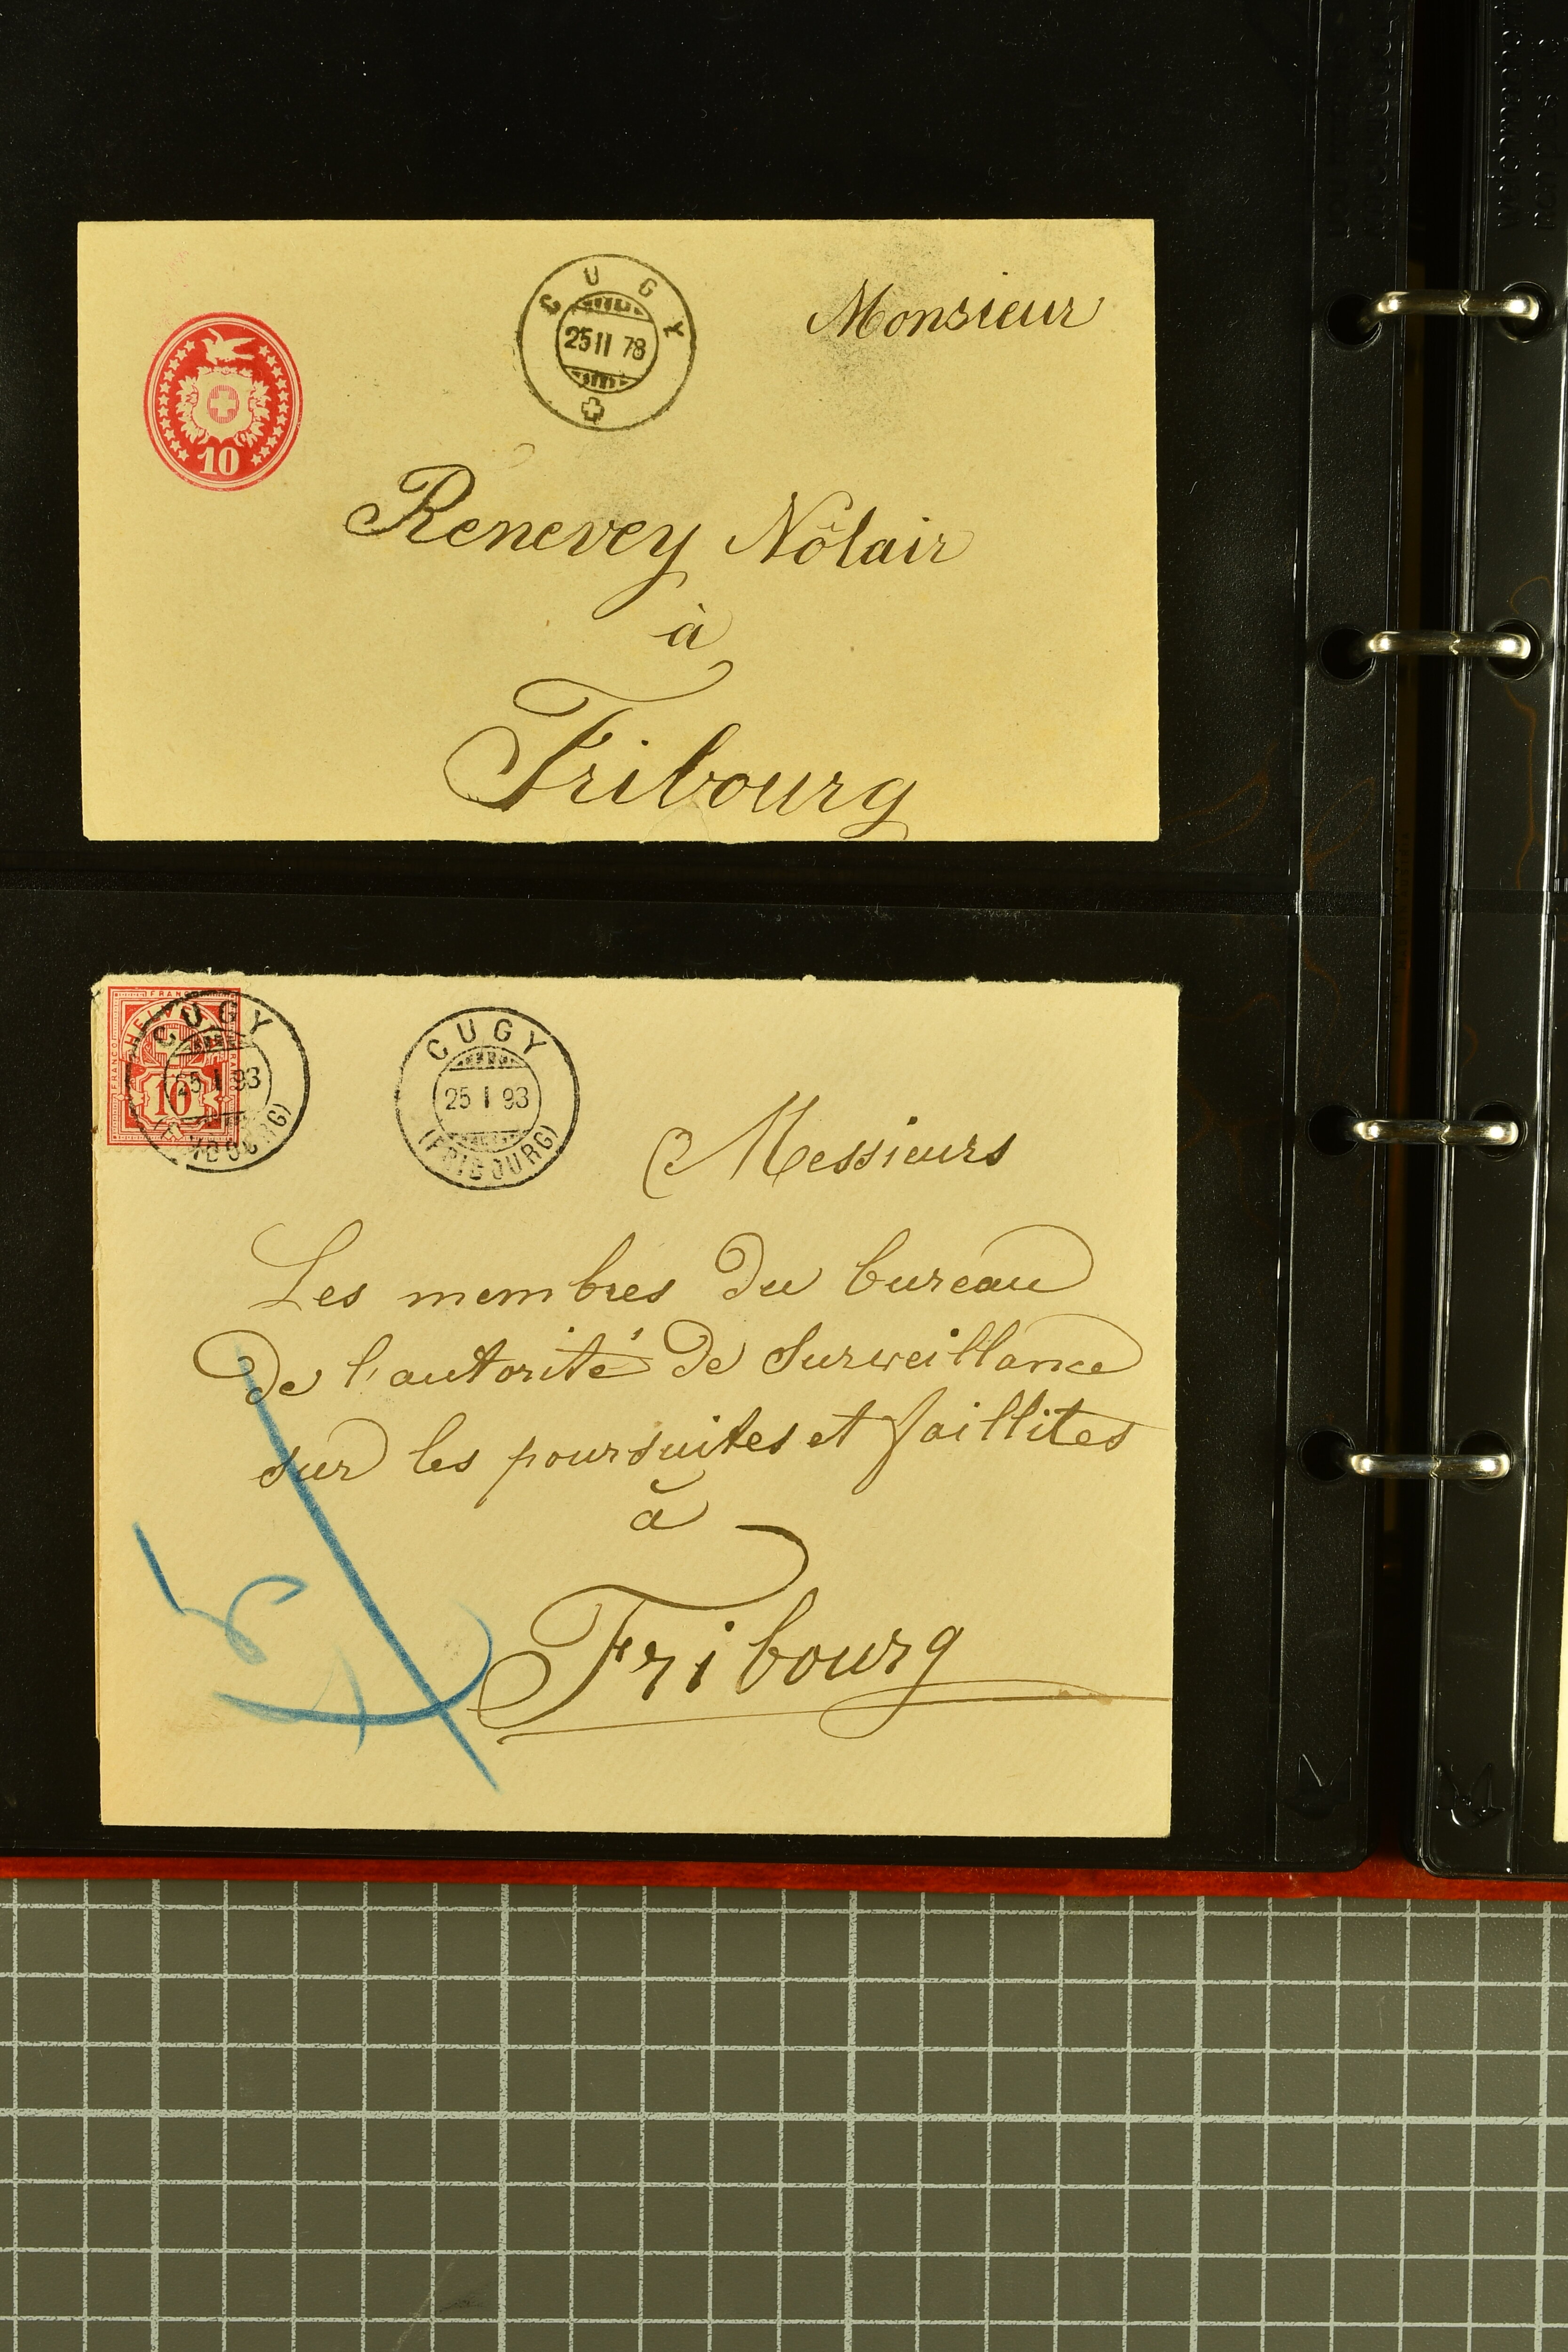 CUGY
25 II 78
10
Monsieur
Renevey Nôtair
à
Fribourg
FRANCO
HELVETIA
FRANCO
10
CUGY
25 I 93
(FRIBOURG)
CUGY
25 I 93
(FRIBOURG)
Messieurs
Les membres du bureau
de l'autorité de surveillance
sur les poursuites et faillites
à
Fribourg